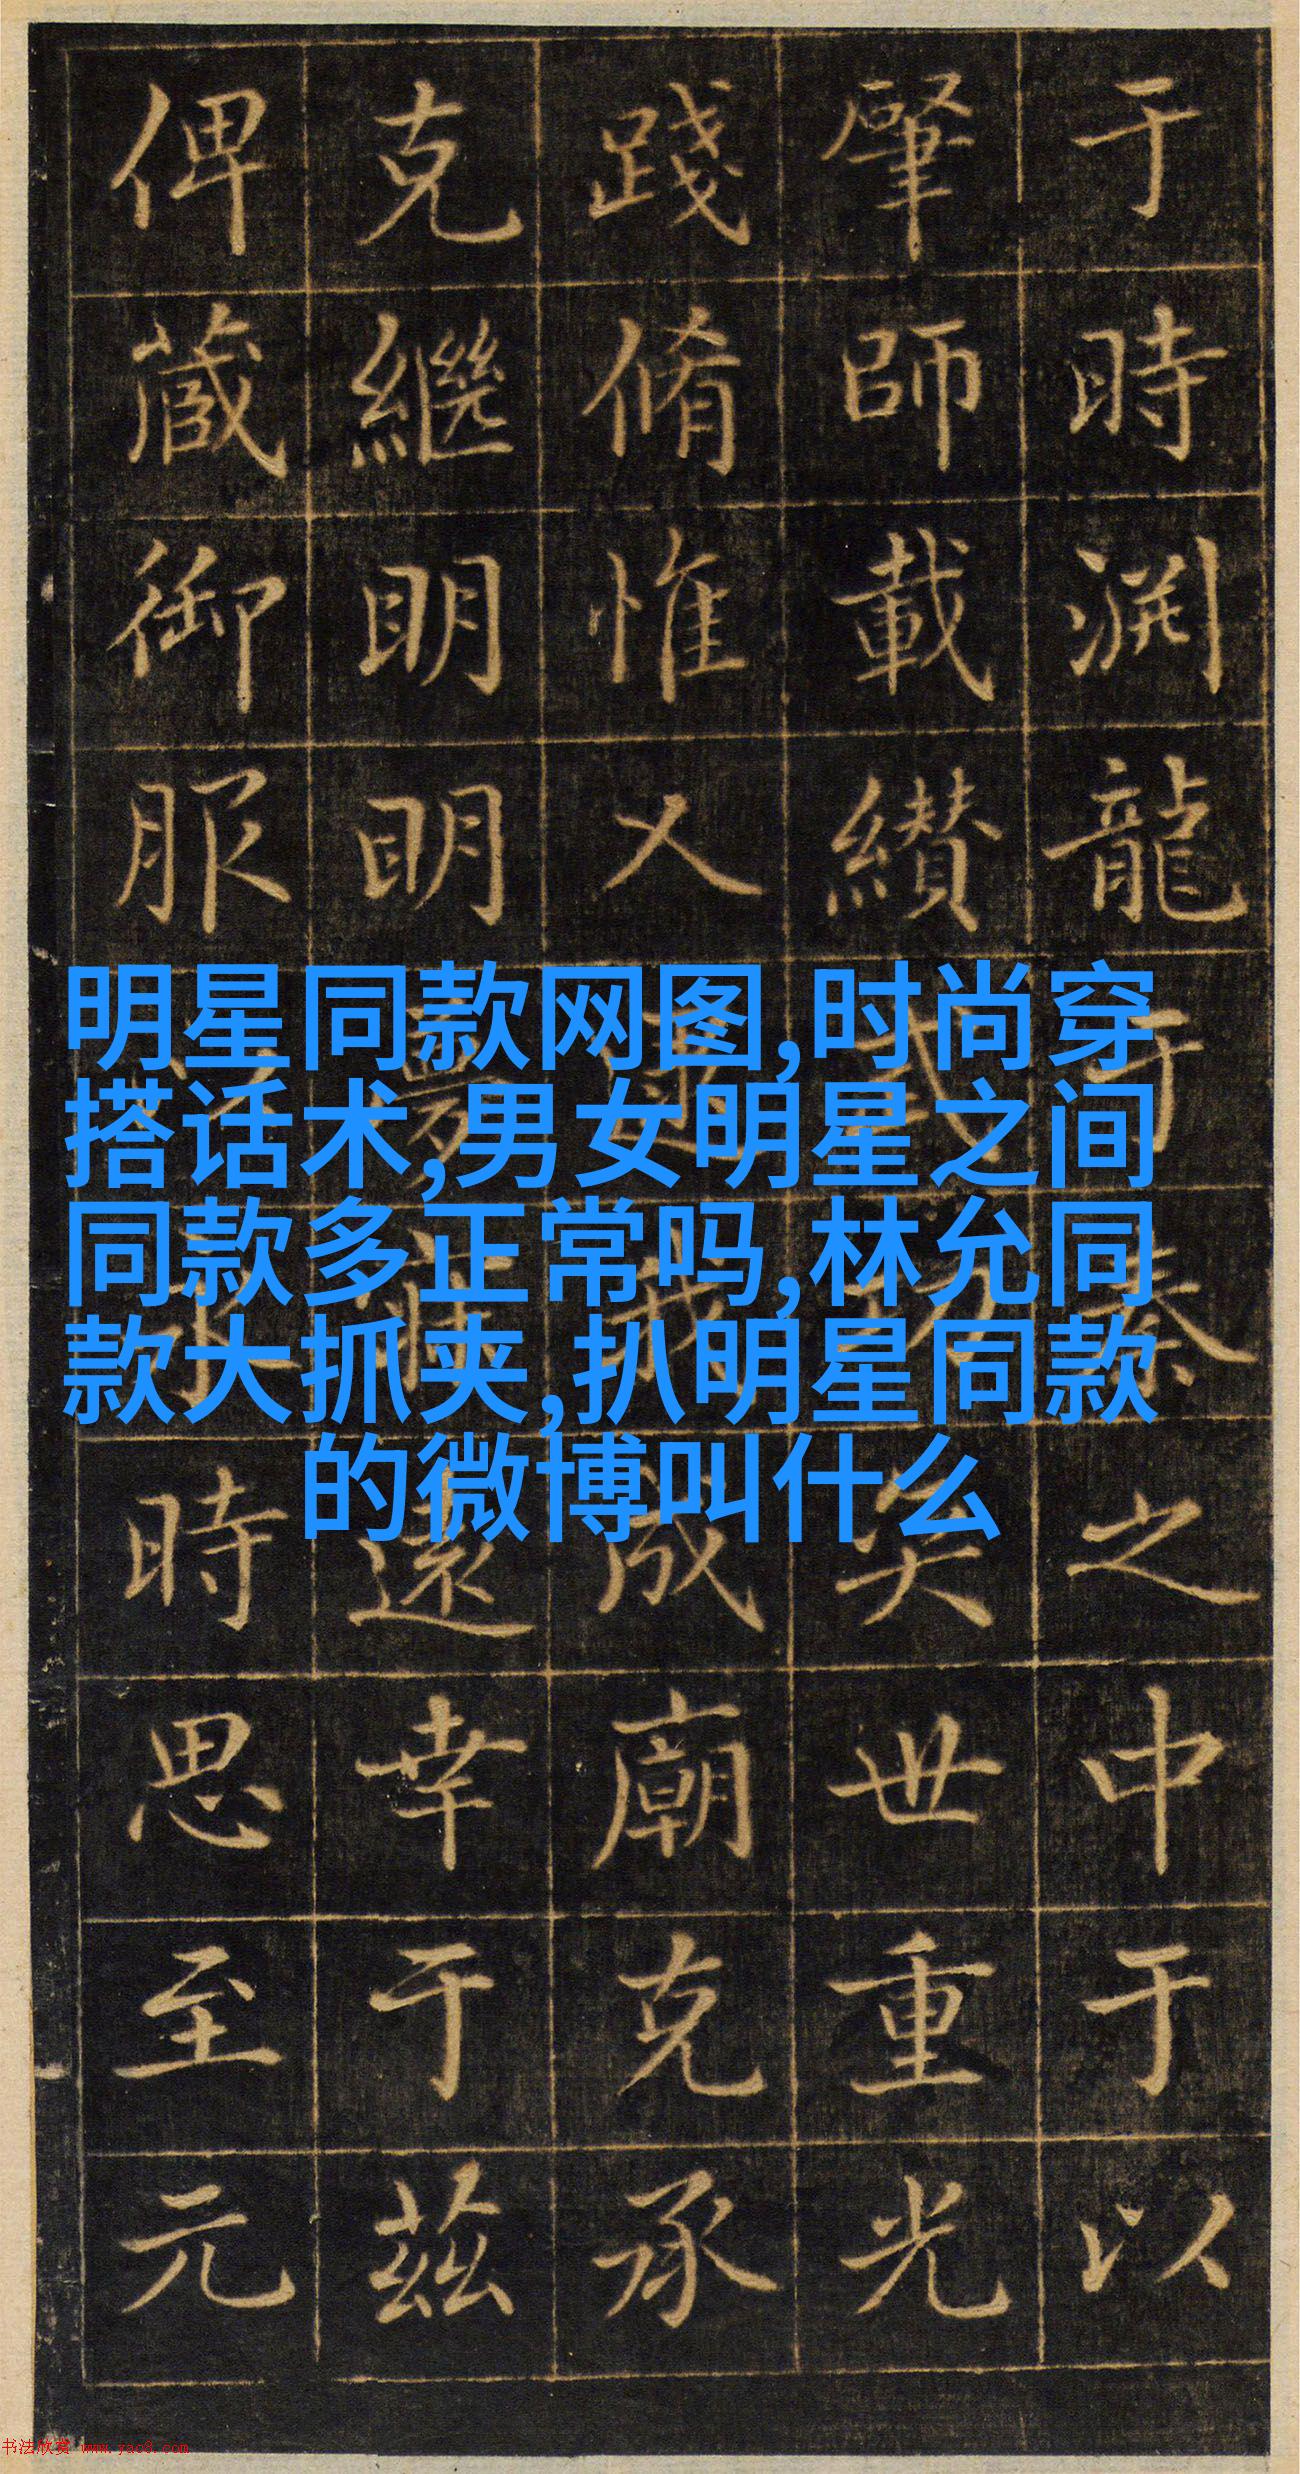 于時渊龍于秦之中于以
肇師載纘武功矣世重光
踐脩惟逮我成廟克承
克繼明明遠幸于茲
俾蕆御服永時思至元
明星同款网图,时尚穿
搭话术,男女明星之间
同款多正常吗,林允同
款大抓夹,扒明星同款
的微博叫什么
书法欣赏 www.yac8.com